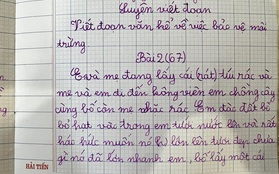 Luyện viết đoạn
Viết đoạn văn kể về việc bảo vệ môi
trừng.
Bài 2 (67)
E và mẹ đang lấy cái (rát) túi rác và
mẹ và em đi đến công viên em chồng cây
cùng bố còn mẹ nhăc rác. Em đăc đất bố
bỏ hạt vào trong em tưới nước lên và rất
háo hức muốn nó lớn lên tươi đẹp chưa
gì nó đã lớn nhanh em, bố lấy một cái
HẢI TIẾN